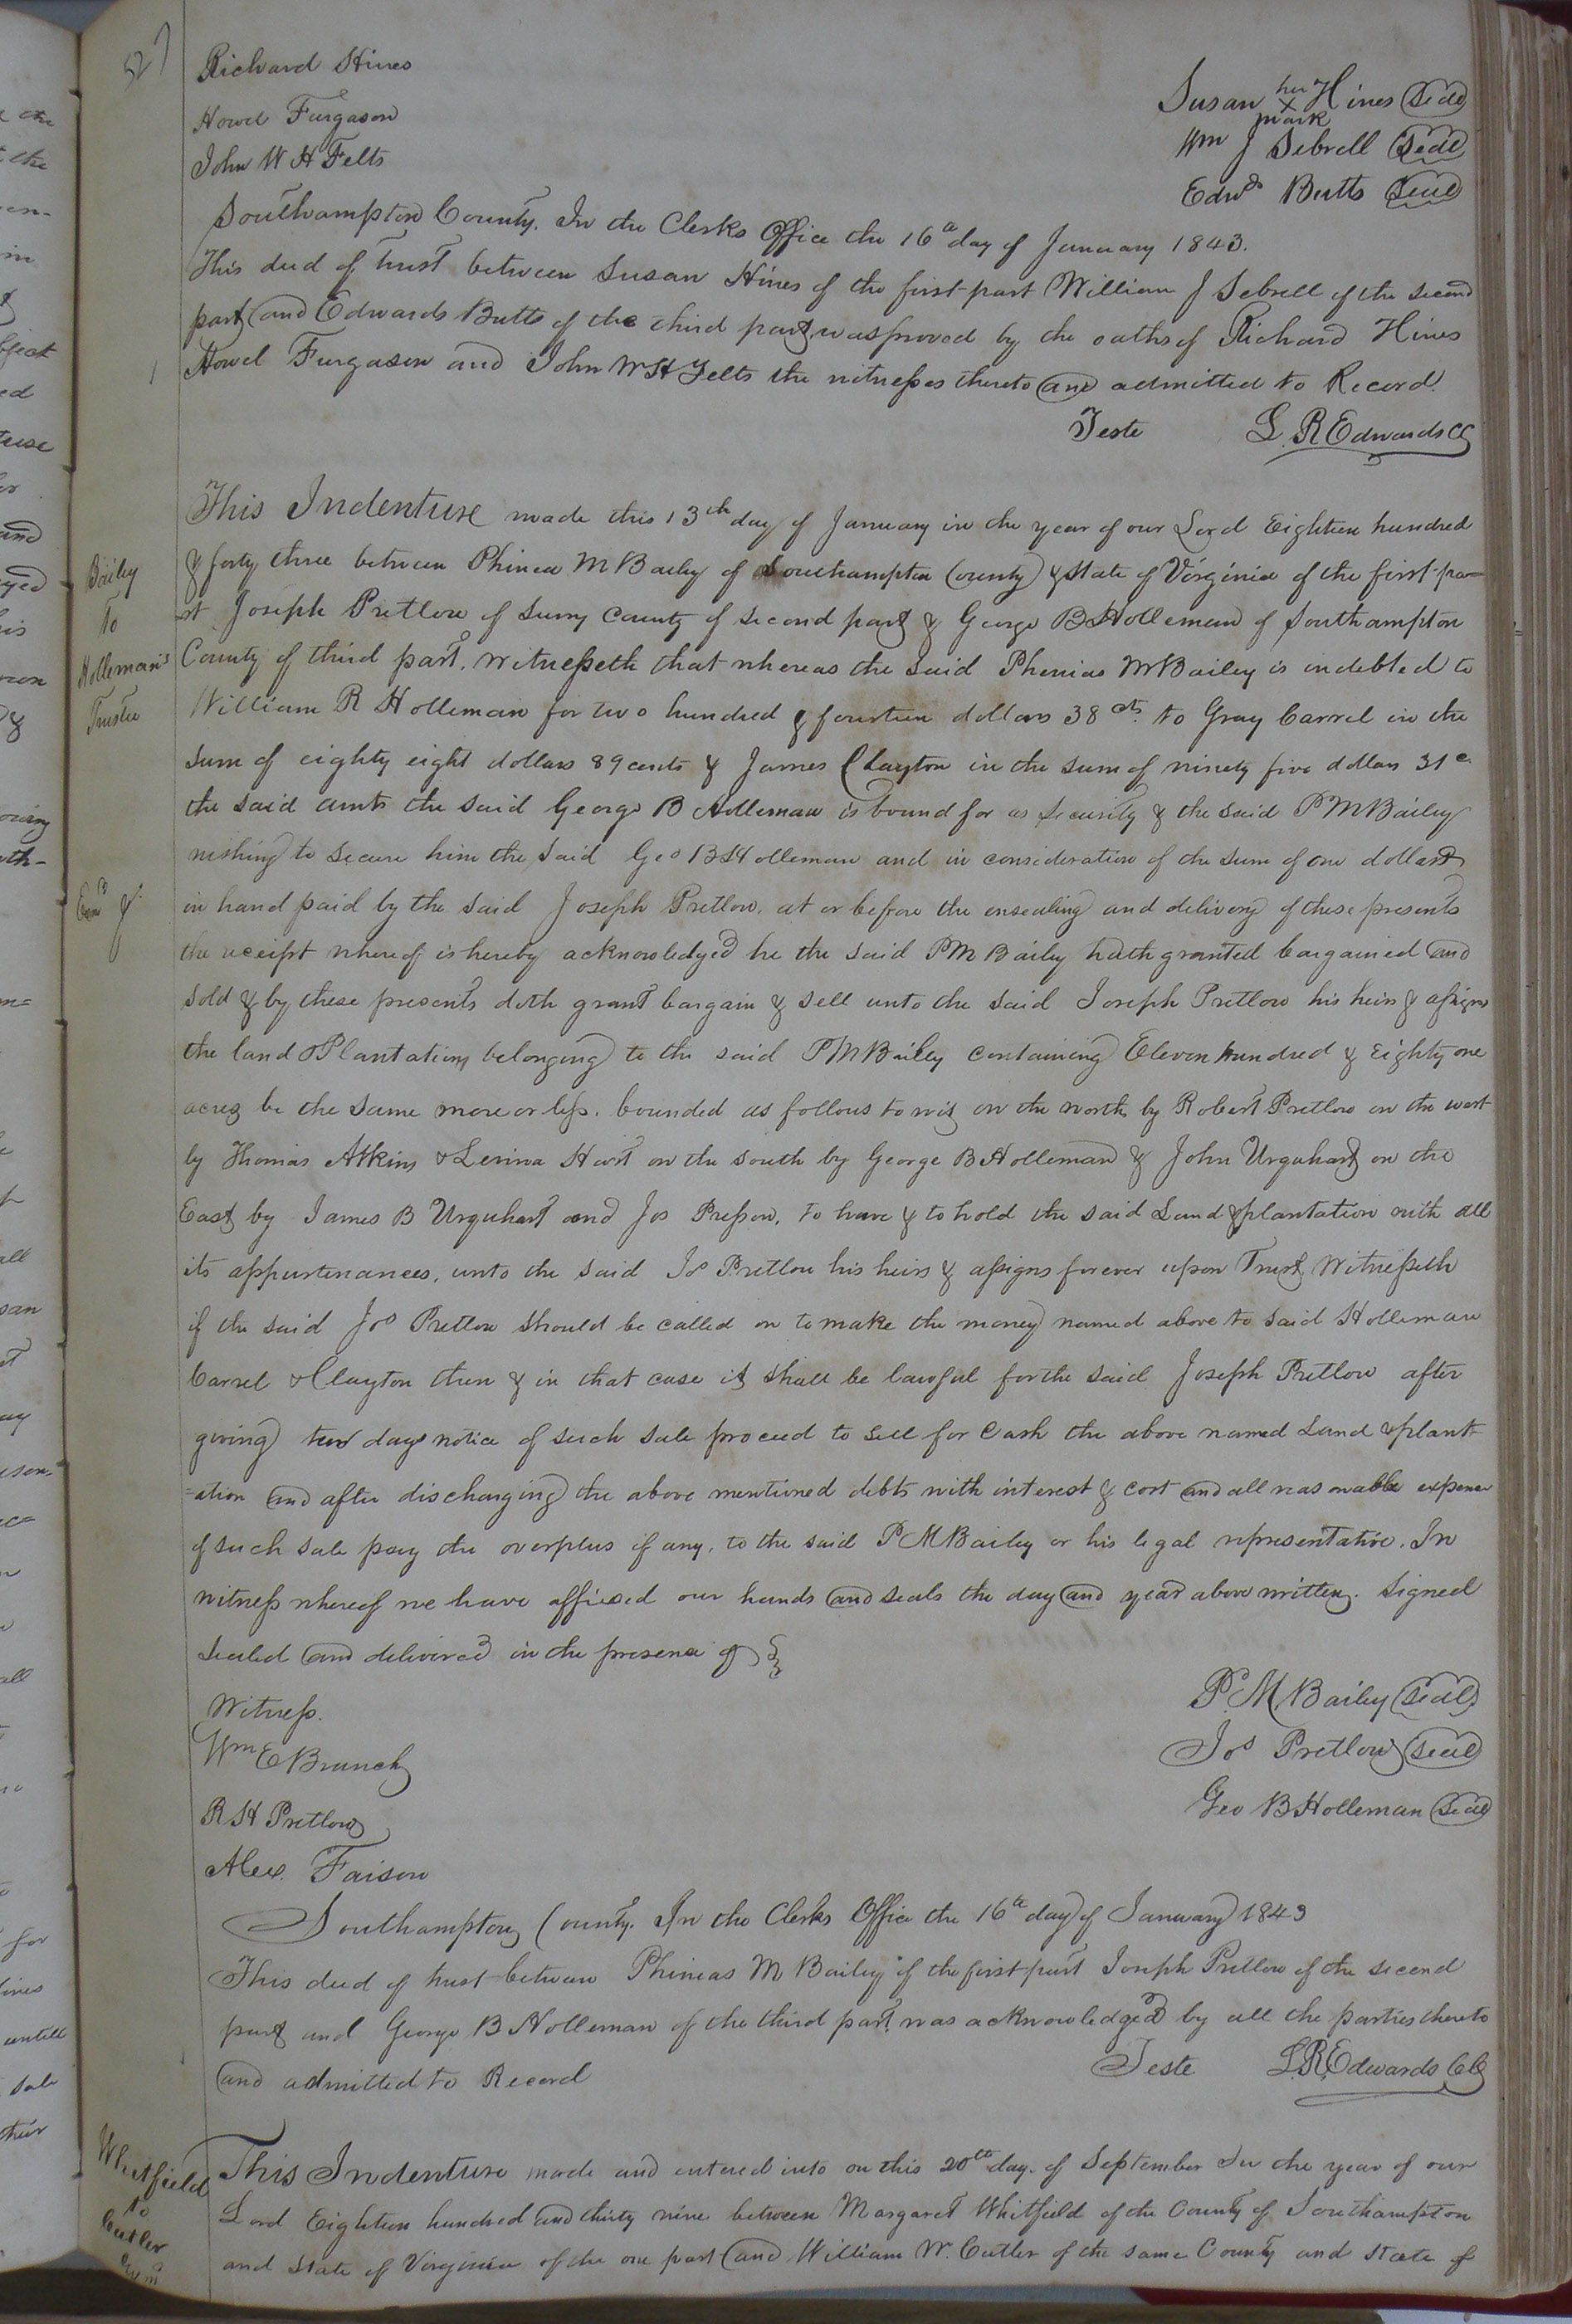 527
Richard Hines
Howel Furgason
John W H Felts
Susan her X mark Hines Seal
Wm J Sebrell Seal
Edwds Butts Seal
Southampton County. In the Clerks Office the 16th day of January 1843.
This deed of trust between Susan Hines of the first part William J Sebrell of the second
part and Edwards Butts of the third part, was proved by the oaths of Richard Hines
Howel Furgason and John W H Felts the witnesses thereto and admitted to Record.
Teste L R Edwards CC
Bailey
To
Holleman's
Trustee
Exmd
This Indenture made this 13th day of January in the year of our Lord Eighteen hundred
& forty three between Phineas M Bailey of Southampton County & State of Virginia of the first pa-
rt Joseph Pretlow of Surry County of second part & George B Holleman of Southampton
County of third part. Witnesseth that whereas the said Phenias M Bailey is indebted to
William R Holleman for two hundred & fourteen dollars 38 cts. to Gray Carrel in the
sum of eighty eight dollars 89 cents & James Clayton in the sum of ninety five dollars 31 c.
the said amts the said George B Holleman is bound for as Security & the said P M Bailey
wishing to secure him the said Geo B Holleman and in consideration of the sum of one dollar
in hand paid by the said Joseph Pretlow, at or before the ensealing and delivery of these presents
the receipt whereof is hereby acknowledged he the said P M Bailey hath granted bargained and
sold & by these presents doth grant bargain & sell unto the said Joseph Pretlow his heirs & assigns
the land & Plantation belonging to the said P M Bailey containing Eleven hundred & Eighty one
acres be the same more or less. bounded as follows to wit on the north by Robert Pretlow on the west
by Thomas Atkins & Levina Hart on the south by George B Holleman & John Urquhart on the
East by James B Urquhart and Jos Presson, to have & to hold the said Land & plantation with all
its appurtenances, unto the said Jos Pretlow his heirs & assigns forever upon Trust Witnesseth
if the said Jos Pretlow should be called on to make the money named above to said Holleman
Carrel & Clayton then & in that case it shall be lawful for the said Joseph Pretlow after
giving ten days notice of such sale proceed to sell for Cash the above named Land & plant-
=ation and after discharging the above mentioned debts with interest & cost and all reasonable expense
of such sale pay the overplus if any, to the said P M Bailey or his legal representative. In
witness whereof we have affixed our hands and seals the day and year above written. Signed
Sealed and delivered in the presence of
Witness.
Wm E Branch
R H Pretlow
Alex. Faison
P. M. Bailey Seal
Jos Pretlow Seal
Geo B Holleman Seal
Southampton County. In the Clerks Office the 16th day of January 1843
This deed of trust between Phineas M Bailey of the first part Joseph Pretlow of the second
part and George B Holleman of the third part, was acknowledged by all the parties thereto
and admitted to Record
Teste L. R. Edwards CC
Whitfield
to
Cutler
This Indenture made and entered into on this 20th day. of September In the year of our
Lord Eighteen hundred and thirty nine between Margaret Whitfield of the County of Southampton
and State of Virginia of the one part and William W. Cutler of the same County and State of